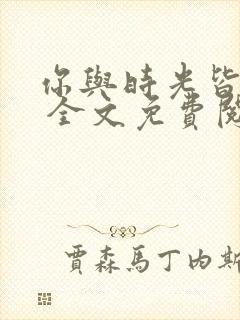 你與時光皆
全文免費閱
賈森馬丁內斯